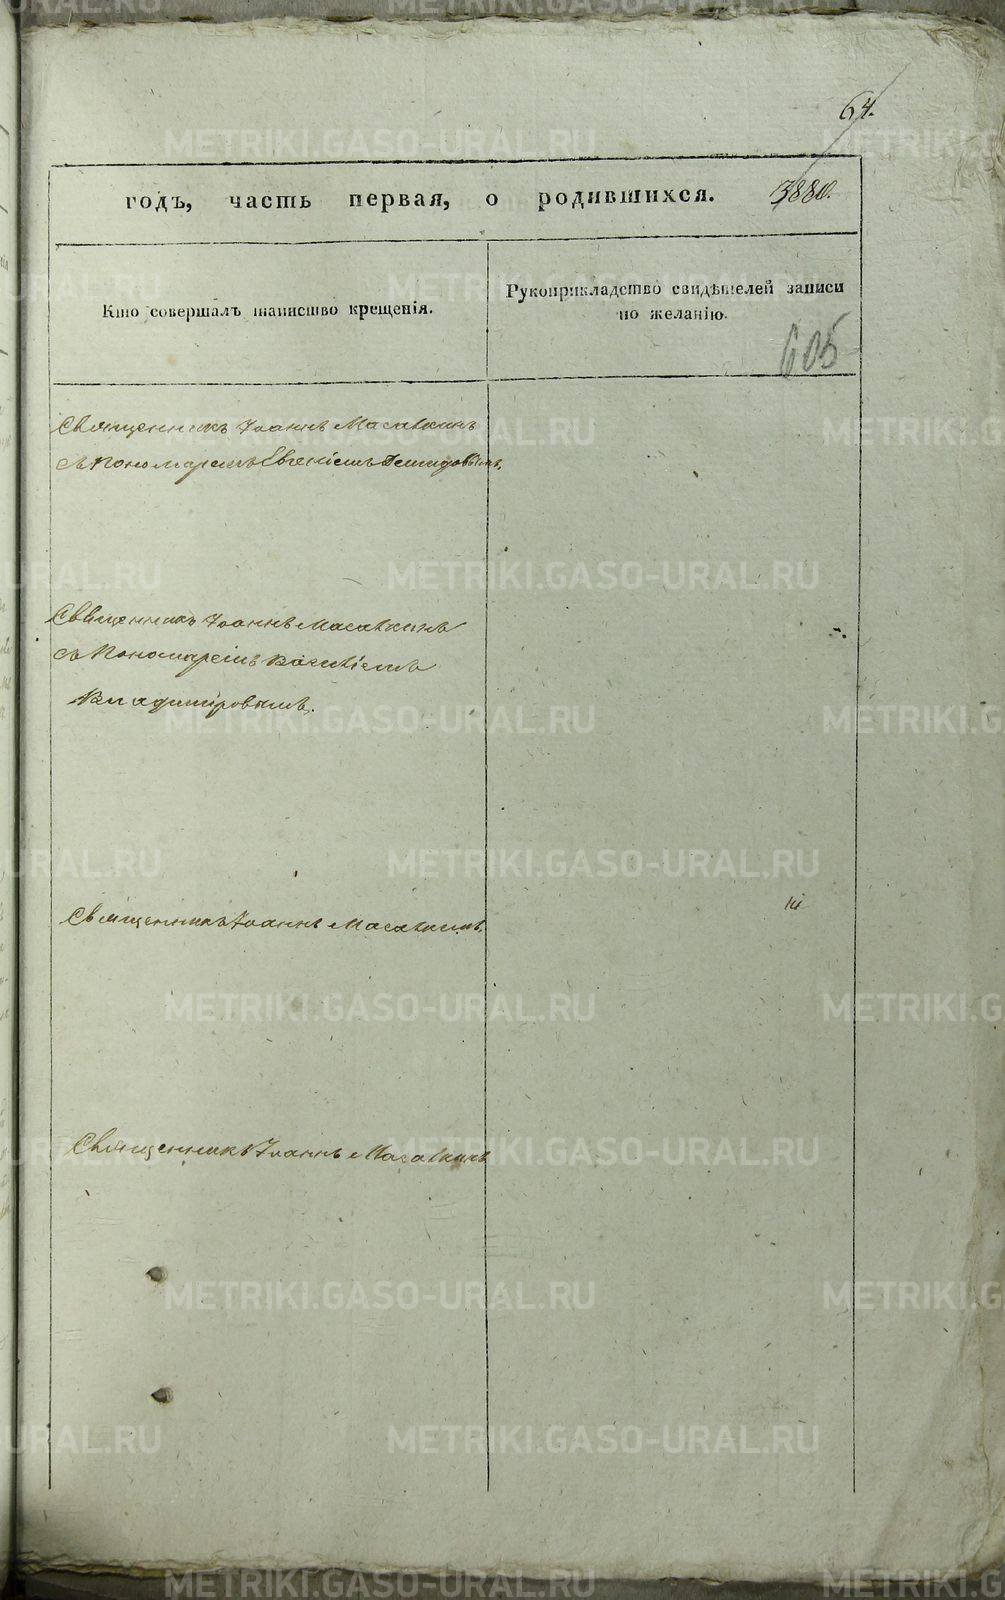 64.
годъ, часть первая, о родившихся. 3880.
Кто совершалъ таинство крещенія.
Рукоприкладство свидѣтелей записи по желанію.
605
Священникъ Іоаннъ
съ Пономаремъ Евгеніемъ Демидовымъ.
Священникъ Іоаннъ
съ Пономаремъ Василіемъ
Владиміровымъ.
Священникъ Іоаннъ
Священникъ Іоаннъ
METRIKI.GASO-URAL.RU